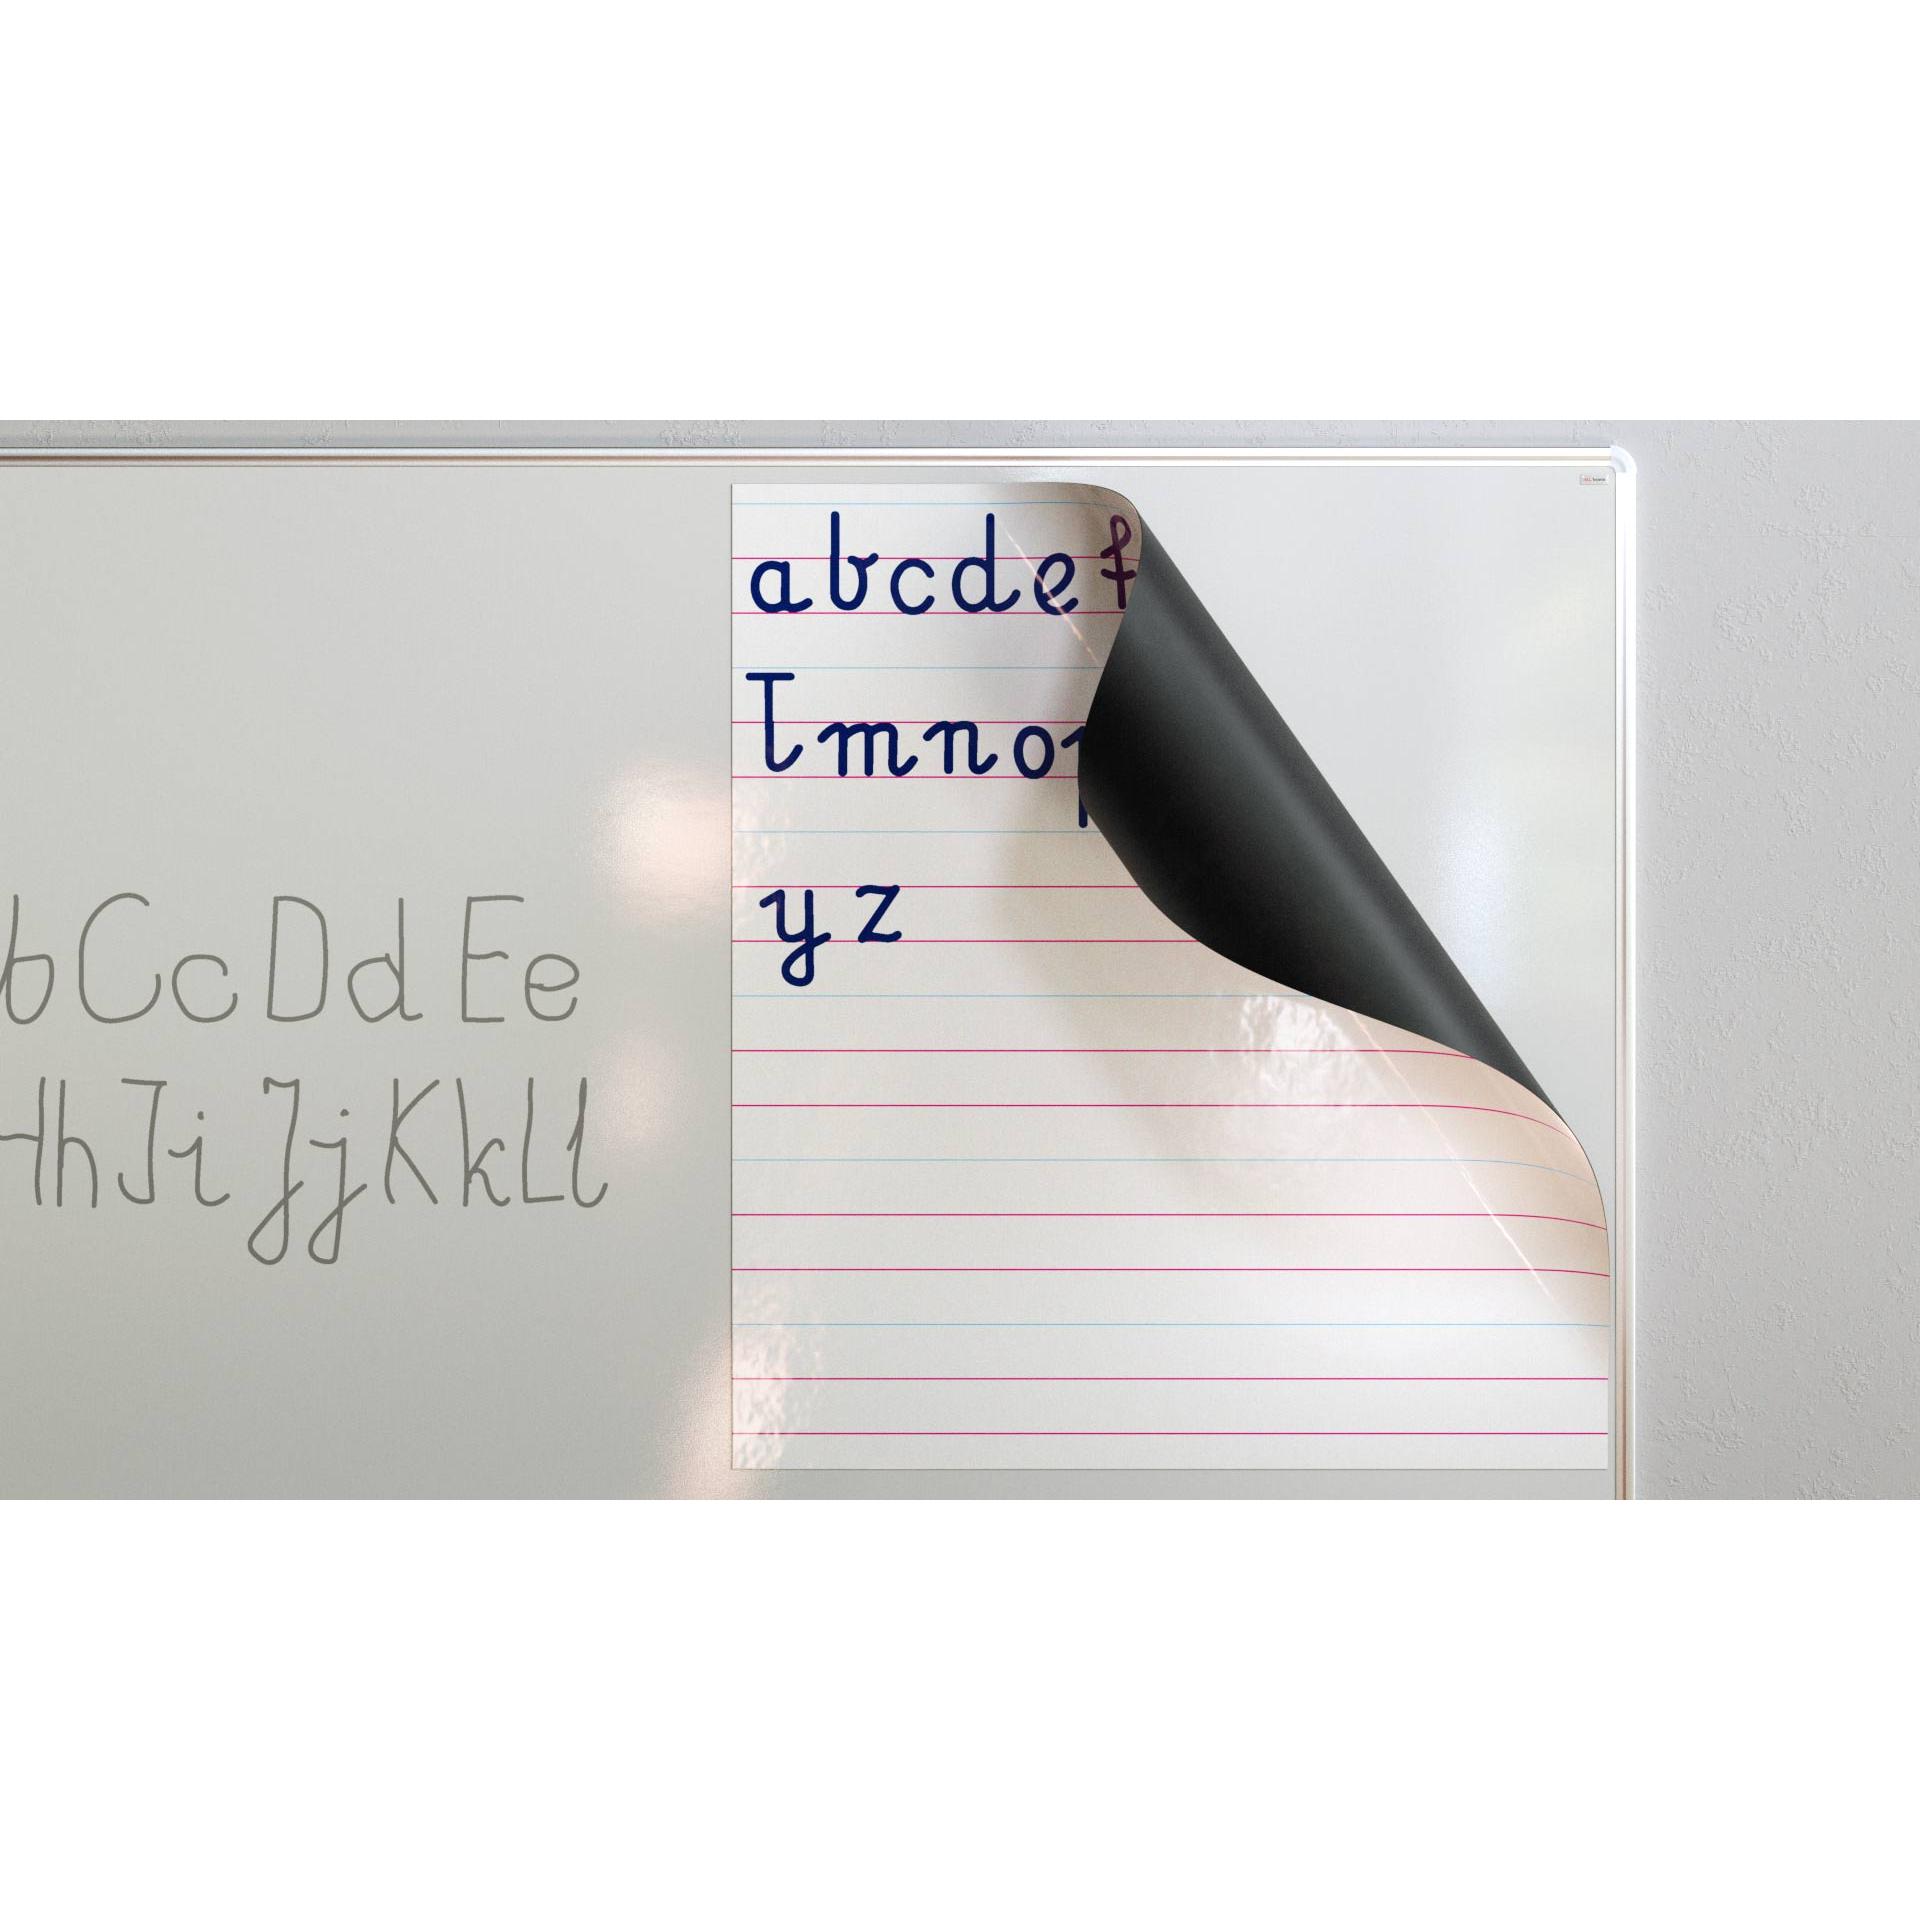 abcdef
lmnop
yz
bCcDdEe
HhIiJjKkLl